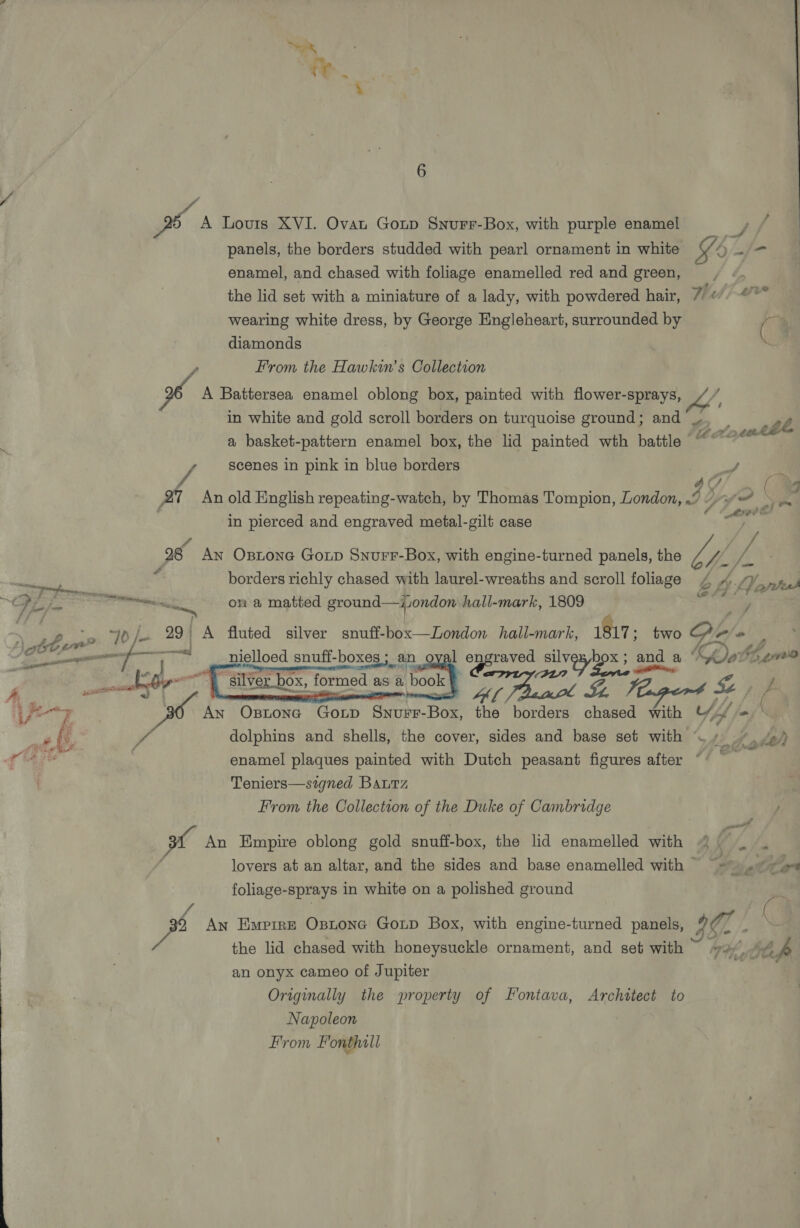 6
25 A Louis XVI. Oval Gold Snuff-Box, with purple enamel
panels, the borders studded with pearl ornament in white
enamel, and chased with foliage enamelled red and green,
the lid set with a miniature of a lady, with powdered hair,
wearing white dress, by George Engleheart, surrounded by
diamonds
From the Hawkin's Collection
26 A Battersea enamel oblong box, painted with flower-sprays,
in white and gold scroll borders on turquoise ground; and
a basket-pattern enamel box, the lid painted wth battle
scenes in pink in blue borders
27 An old English repeating-watch, by Thomas Tompion, London,
in pierced and engraved metal-gilt case
28 An Oblong Gold Snuff-Box, with engine-turned panels, the
borders richly chased with laurel-wreaths and scroll foliage
on a matted ground—London hall-mark, 1809
29 A fluted silver snuff-box—London hall-mark, 1817; two
nielloed snuff-boxes; an oval engraved silver box; and a
silver box, formed as a book
30 An Oblong Gold Snuff-Box, the borders chased with
dolphins and shells, the cover, sides and base set with
enamel plaques painted with Dutch peasant figures after
Teniers—signed Bautz
From the Collection of the Duke of Cambridge
31 An Empire oblong gold snuff-box, the lid enamelled with
lovers at an altar, and the sides and base enamelled with
foliage-sprays in white on a polished ground
32 An Empire Oblong Gold Box, with engine-turned panels,
the lid chased with honeysuckle ornament, and set with
an onyx cameo of Jupiter
Originally the property of Fontava, Architect to
Napoleon
From Fonthill